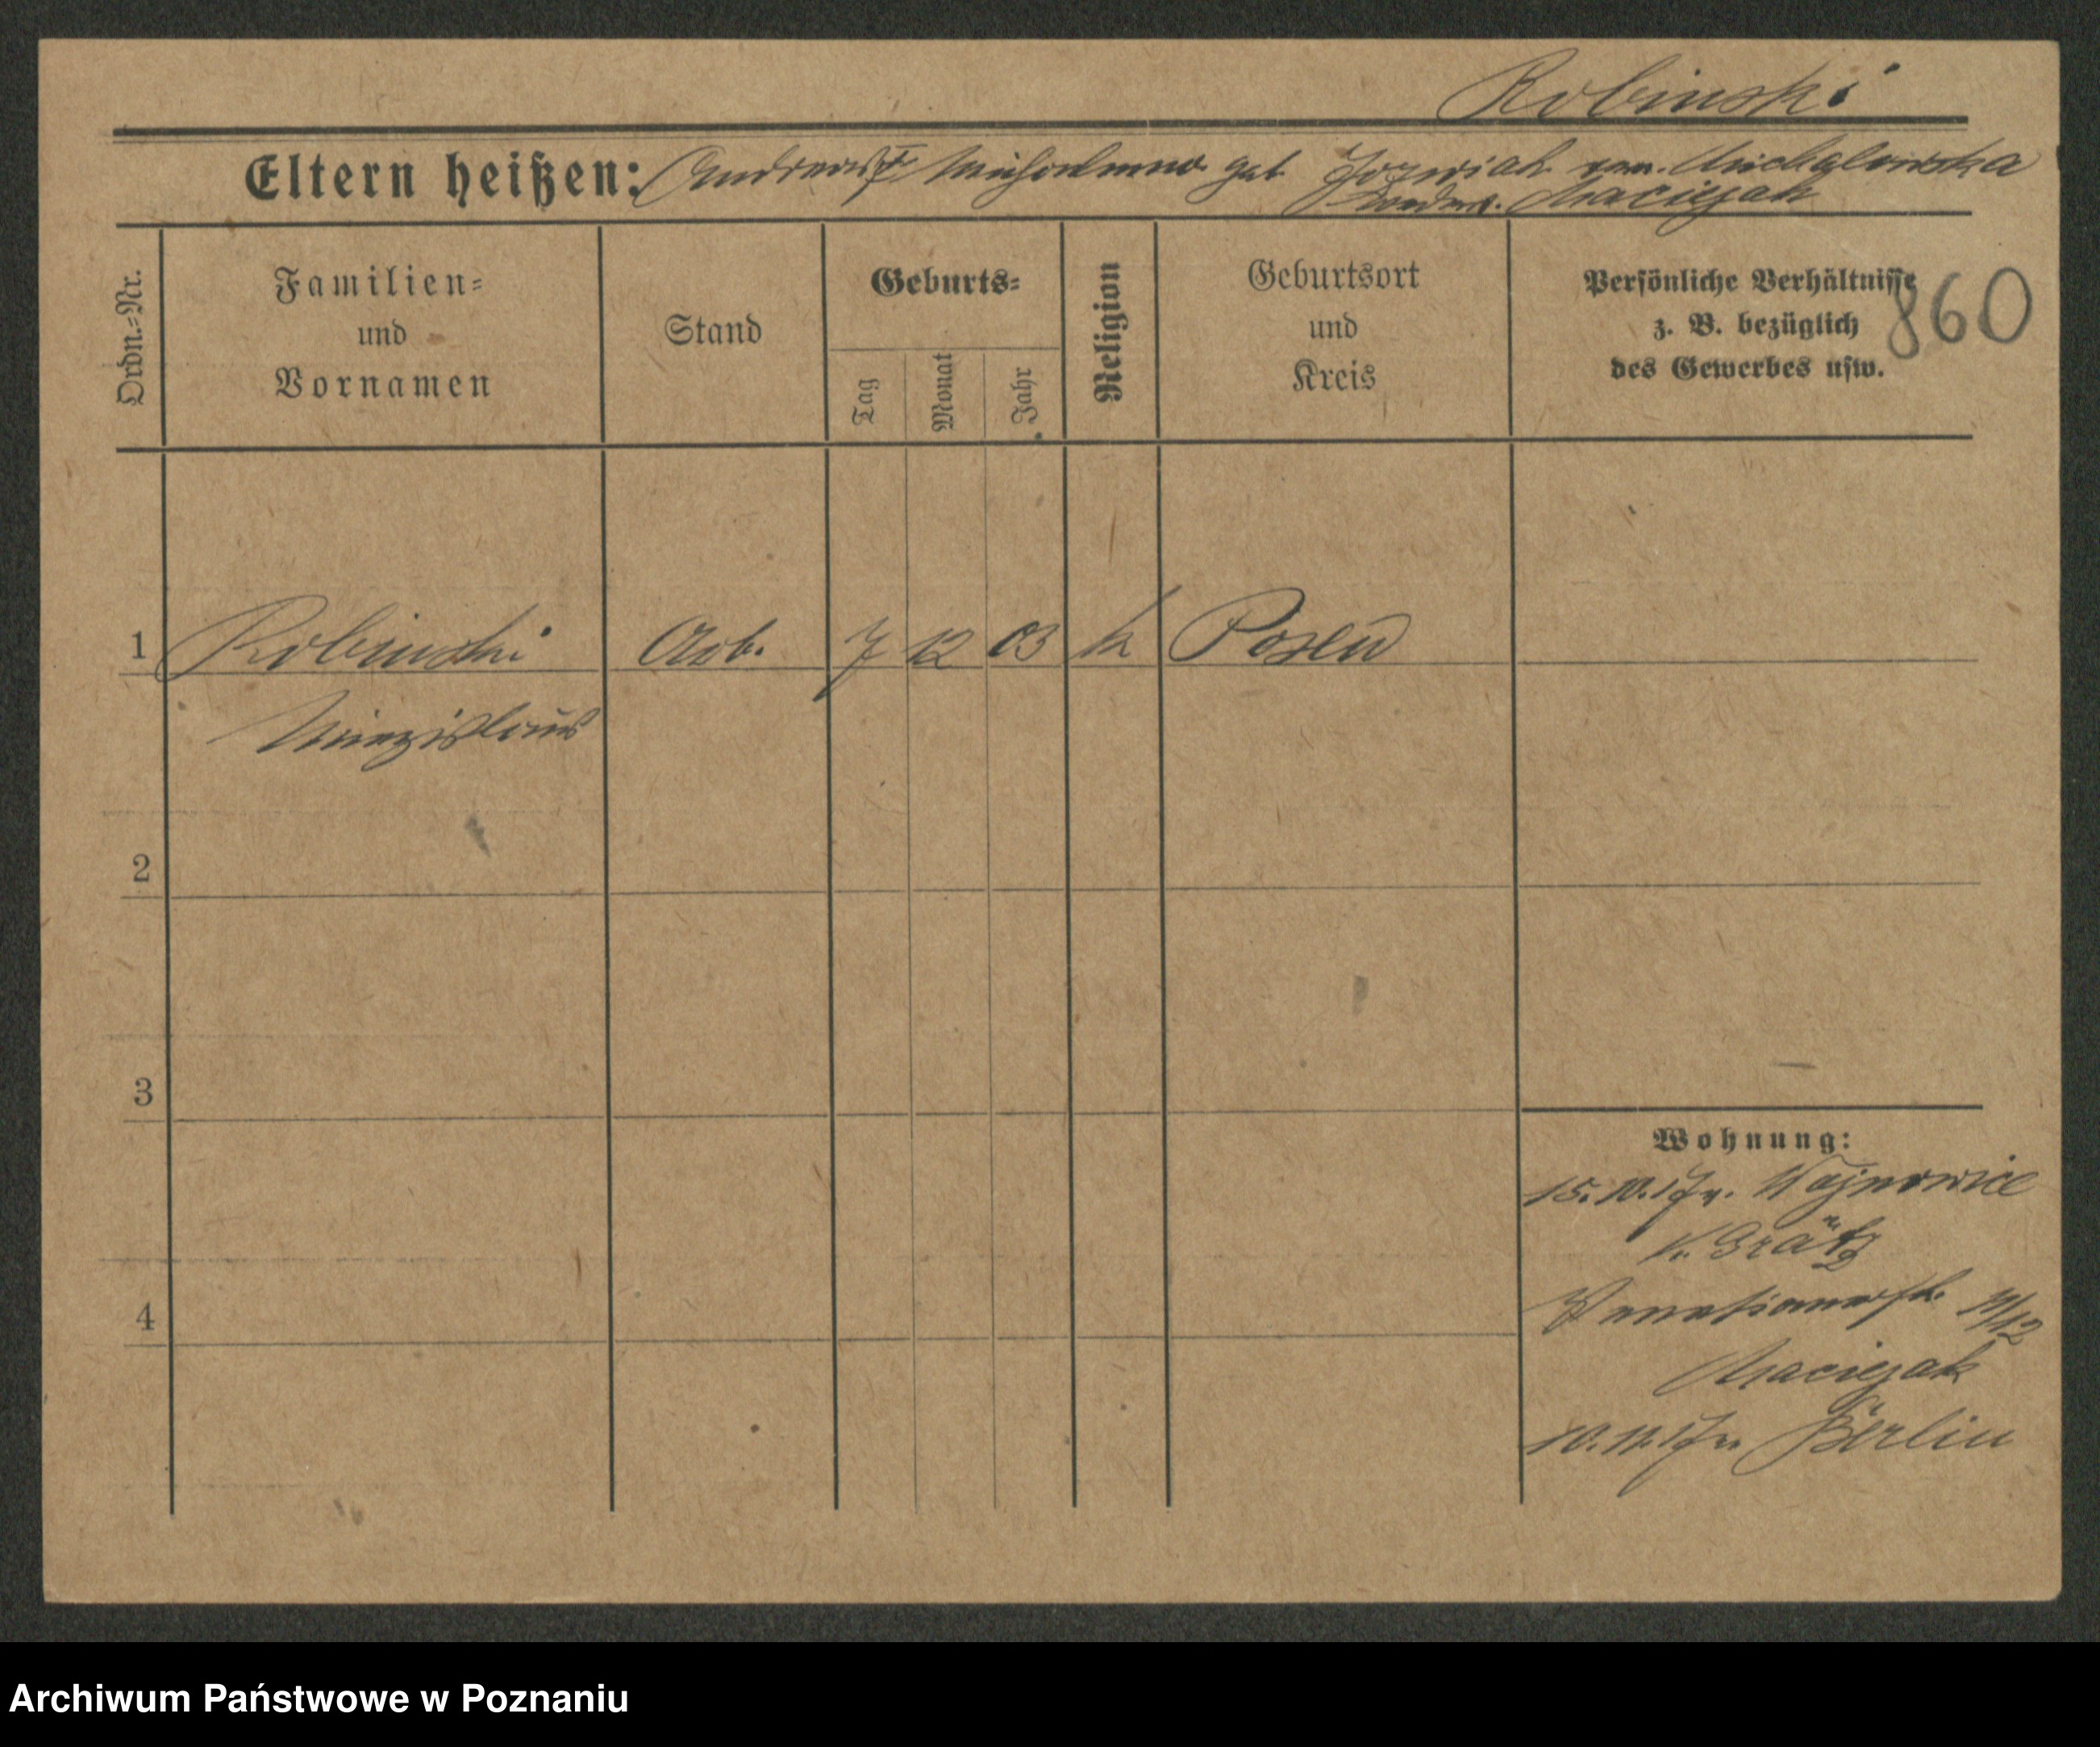 Robinski
Eltern heißen: Andreas † Michalina geb. Jozwiak verw. Michalowska
Maciejak
Ordn.=Nr.
Familien=
und
Vornamen
Stand
Geburts=
Tag
Monat
Jahr
Religion
Geburtsort
und
Kreis
Persönliche Verhältnisse
z. B. bezüglich
des Gewerbes usw.
860
1 Robinski Arb. 7 12 03 k Posen
Miezislaus
2
3
4
Wohnung:
15.10.17 v. Wojnowice
K. Grätz
Venetianerstr. 11/12
Maciejak
10.11.17 n Berlin
Archiwum Państwowe w Poznaniu